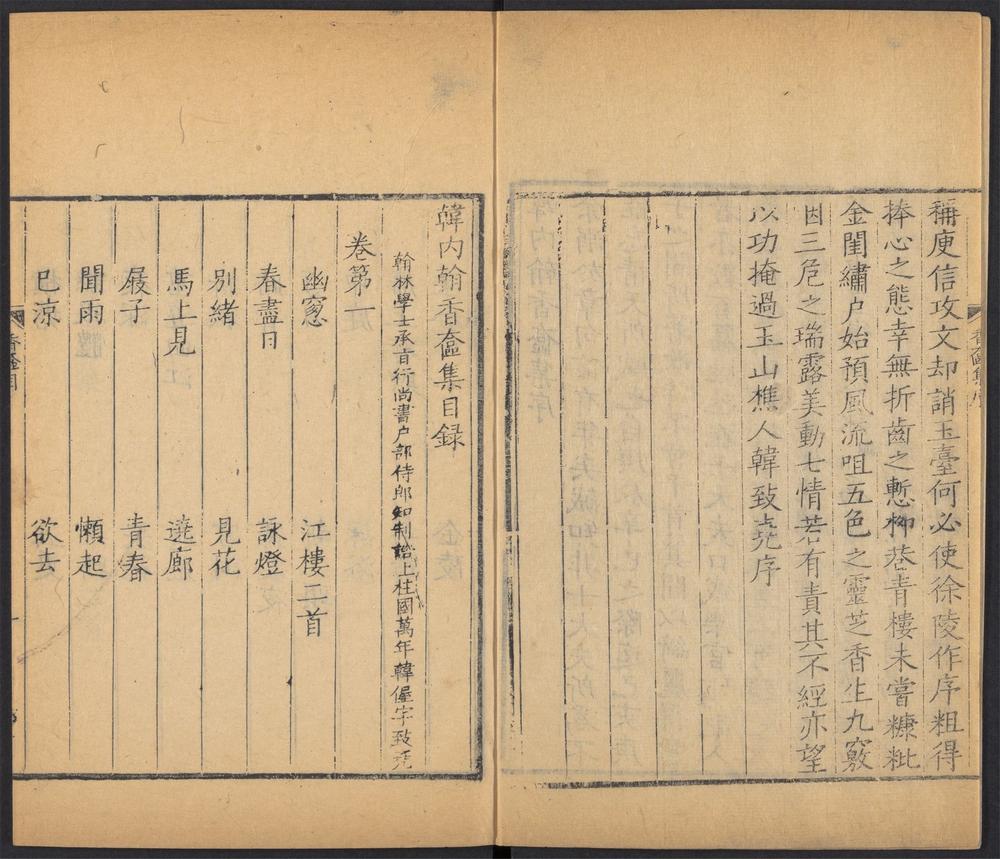 稱庾信攻文却誚玉臺何必使徐陵作序粗得
捧心之態幸無折齒之慙柳巷青樓未嘗糠粃
金閨繡户始預風流咀五色之靈芝香生九竅
咽三危之瑞露美動七情若有責其不經亦望
以功掩過玉山樵人韓致堯序
韓内翰香奩集目録
翰林學士承㫖行尚書户部侍郎知制誥上柱國萬年韓偓字致堯
卷第一
幽窻 江樓二首
春盡日 詠燈
別緒 見花
馬上見 遶廊
屐子 青春
聞雨 懶起
已涼 欲去